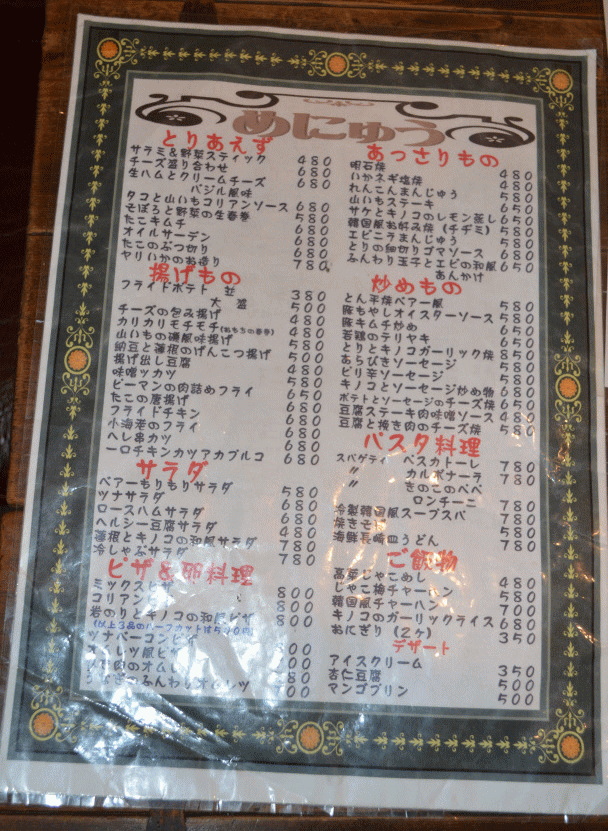 めにゅう
とりあえず
サラミ&野菜スティック 480
チーズ盛り合わせ 680
生ハムとクリームチーズ 680
バジル風味
タコと山いもコリアンソース 680
そぼろと野菜の生春巻 580
たこキムチ 680
オイルサーデン 680
たこのぶつ切り 680
ヤリいかのお造り 780
揚げもの
フライドポテト 並 380
大盛 500
チーズの包み揚げ 480
カリカリモチモチ(おもちの春巻) 480
山いもの磯風味揚げ 580
納豆と蓮根のげんこつ揚げ 500
揚げ出し豆腐 480
味噌ヅカツ 580
ピーマンの肉詰めフライ 650
たこの唐揚げ 680
フライドチキン 680
小海老のフライ 680
ヘレ串カツ 680
一口チキンカツアカプルコ 680
サラダ
ベアーもりもりサラダ 580
ツナサラダ 680
ロースハムサラダ 680
ヘルシー豆腐サラダ 480
蓮根とキノコの和風サラダ 780
冷しゃぶサラダ 780
ピザ&卵料理
ミックスピザ 800
コリアン 800
岩のりとキノコの和風ピザ 800
ツナベーコン
オムレツ
あっさりもの
明石焼 480
いかネギ塩焼 480
れんこんまんじゅう 580
山いもステーキ 580
サケとキノコのレモン蒸し 650
韓国風お好み焼(チヂミ) 650
エビニラまんじゅう 580
とりの細切りゴマソース 680
ふんわり玉子とエビの和風 650
あんかけ
炒めもの
とん平焼ベアー風 580
豚もやしオイスターソース 580
豚キムチ炒め 650
若鶏のテリヤキ 650
とりとキノコガーリック焼 850
あらびきソーセージ 580
ピリ辛ソーセージ 580
キノコとソーセージ炒め物 680
ポテトとソーセージのチーズ焼 650
豆腐ステーキ肉味噌ソース 480
豆腐と挽き肉のチーズ焼 580
パスタ料理
スパゲティ ペスカトーレ 780
〃 カルボナーラ 780
〃 きのこのペペ 780
ロンチーニ
冷製韓国風スープスパ 780
焼きそば 580
海鮮長崎皿うどん 780
ご飯物
高菜じゃこめし 480
じゃこ梅チャーハン 580
韓国風チャーハン 700
キノコのガーリックライス 680
おにぎり(2ヶ) 350
デザート
アイスクリーム 350
杏仁豆腐 500
マンゴプリン 500